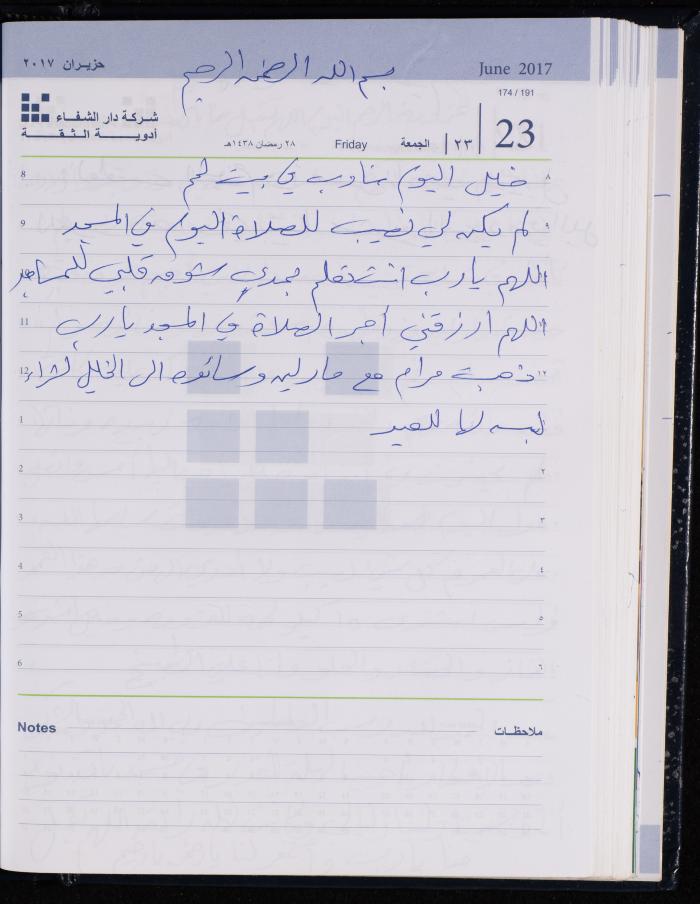 حزيـران ٢٠١٧
بسم الله الرحمن الرحيم
June 2017
174 / 191
شركة دار الشفاء
أدويــة الثقــة
٢٨ رمضان ١٤٣٨هـ
Friday
الجمعة
٢٣
23
8 خليل اليوم مناوب في بيت لحم ٨
9 لم يكن لي نصيب للصلاة اليوم في المسجد ٩
10 اللهم يا رب انت تعلم بمدى شوق قلبي للمساجد
11 اللهم ارزقني أجر الصلاة في المسجد يا رب
12 ذهبت مرام مع مارلين وسائده الى الخليل لشراء ١٢
1 لبسه لها للعيد
2 ٢
3 ٣
4 ٤
5 ٥
6 ٦
Notes ملاحظـات